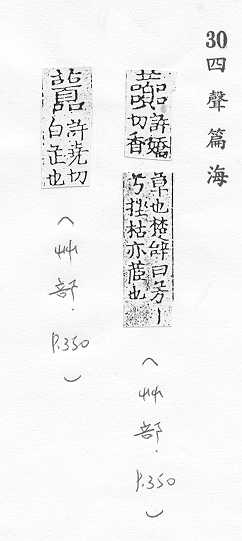 30四聲篇海
虈
許嬌
切香
草也楚辭曰芳丨
兮挫枯亦茝也
(艸部.P.350)
許堯切
白芷也
(艸部.P.350)